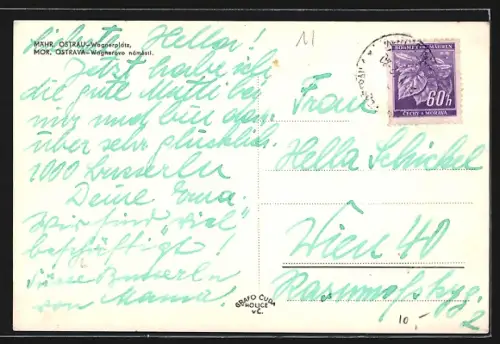 MÄHR. OSTRAU-Wagnerplatz,
MOR. OSTRAVA-Wagnerovo náměstí.
Liebste Hella!
Jetzt habe ich
die gute Mutti bei
mir und bin darüber
über sehr glücklich.
1000 Busserln
Deine Erna.
Wir sind "viel"
beschäftigt!
Busserln
von Mama!
11
BÖHMEN u. MÄHREN
60h
ČECHY a MORAVA
Frau
Hella Schickel
Wien 40
Rasumofskyg.
2
GRAFO ČUDA
HOLICE
v Č.
10,-